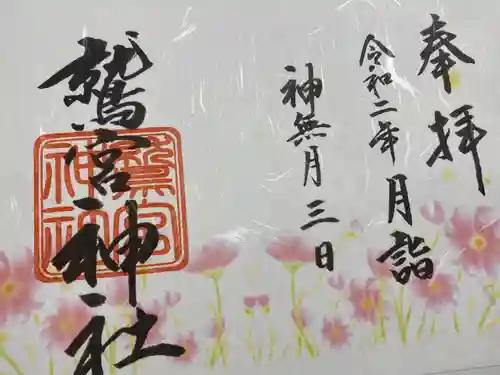 奉拝
令和二年月詣
神無月三日
鷲宮神社
鷲宮神社